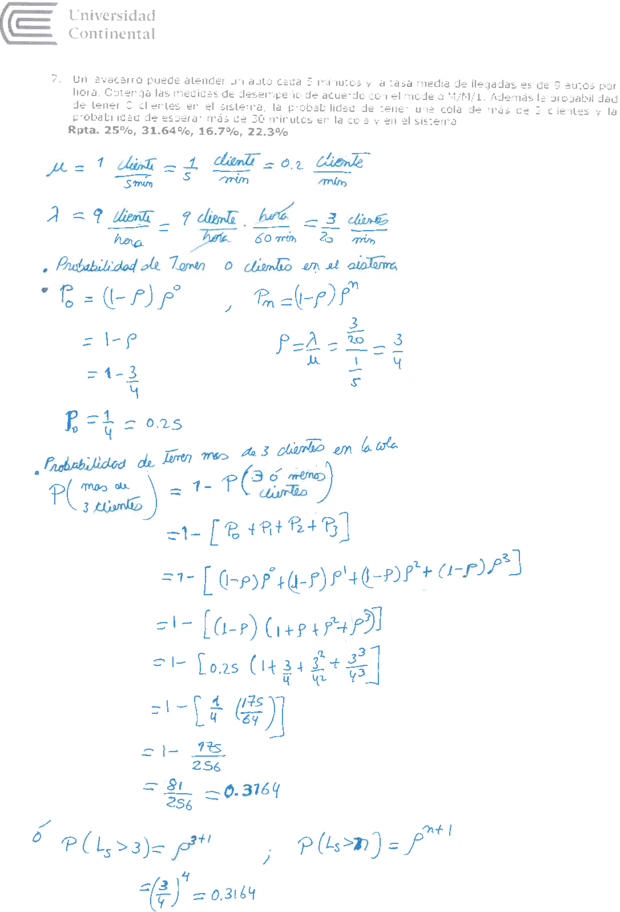 Universidad
Continental
7. Un lavacarro puede atender un auto cada 5 minutos y la tasa media de llegadas es de 9 autos por
hora. Obtenga las medidas de desempeño de acuerdo con el modelo M/M/1. Además la probabilidad
de tener 0 clientes en el sistema, la probabilidad de tener una cola de más de 3 clientes y la
probabilidad de esperar más de 30 minutos en la cola y en el sistema
Rpta. 25%, 31.64%, 16.7%, 22.3%
μ = 1 cliente/5min = 1/5 cliente/min = 0.2 cliente/min
λ = 9 cliente/hora = 9 cliente/hora · hora/60 min = 3/20 clientes/min
• Probabilidad de Tener 0 clientes en el sistema
• P₀ = (1-ρ) ρ⁰ , Pₙ = (1-ρ) ρⁿ
= 1-ρ ρ = λ/μ = (3/20)/(1/5) = 3/4
= 1 - 3/4
P₀ = 1/4 = 0.25
• Probabilidad de tener mas de 3 clientes en la cola
P(mas de 3 clientes) = 1 - P(3 ó menos clientes)
= 1 - [P₀ + P₁ + P₂ + P₃]
= 1 - [(1-ρ)ρ⁰ + (1-ρ)ρ¹ + (1-ρ)ρ² + (1-ρ)ρ³]
= 1 - [(1-ρ) (1+ρ+ρ²+ρ³)]
= 1 - [0.25 (1 + 3/4 + 3²/4² + 3³/4³]
= 1 - [1/4 (175/64)]
= 1 - 175/256
= 81/256 = 0.3164
ó P(Ls > 3) = ρ³⁺¹ ; P(Ls > n) = ρⁿ⁺¹
= (3/4)⁴ = 0.3164